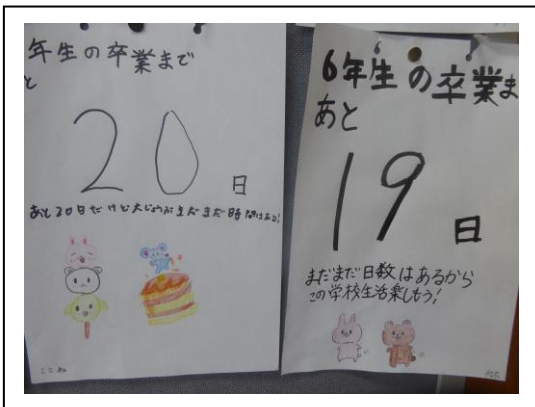 年生の卒業まで
と
20
日
あと20日だけど大じょうぶまだまだ時間はある!
ここね
6年生の卒業ま
あと
19
日
まだまだ日数はあるから
この学校生活楽しもう!